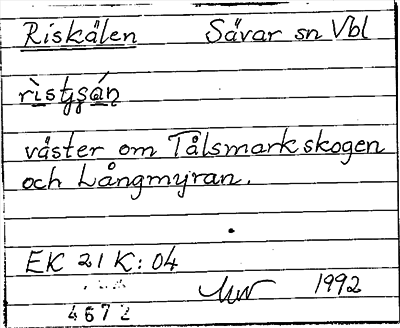 Riskälen Sävar sn Vbl
rìstʂsán
väster om Tålsmarkskogen
och Långmyran.
EK 21 K: 04
1992
4672